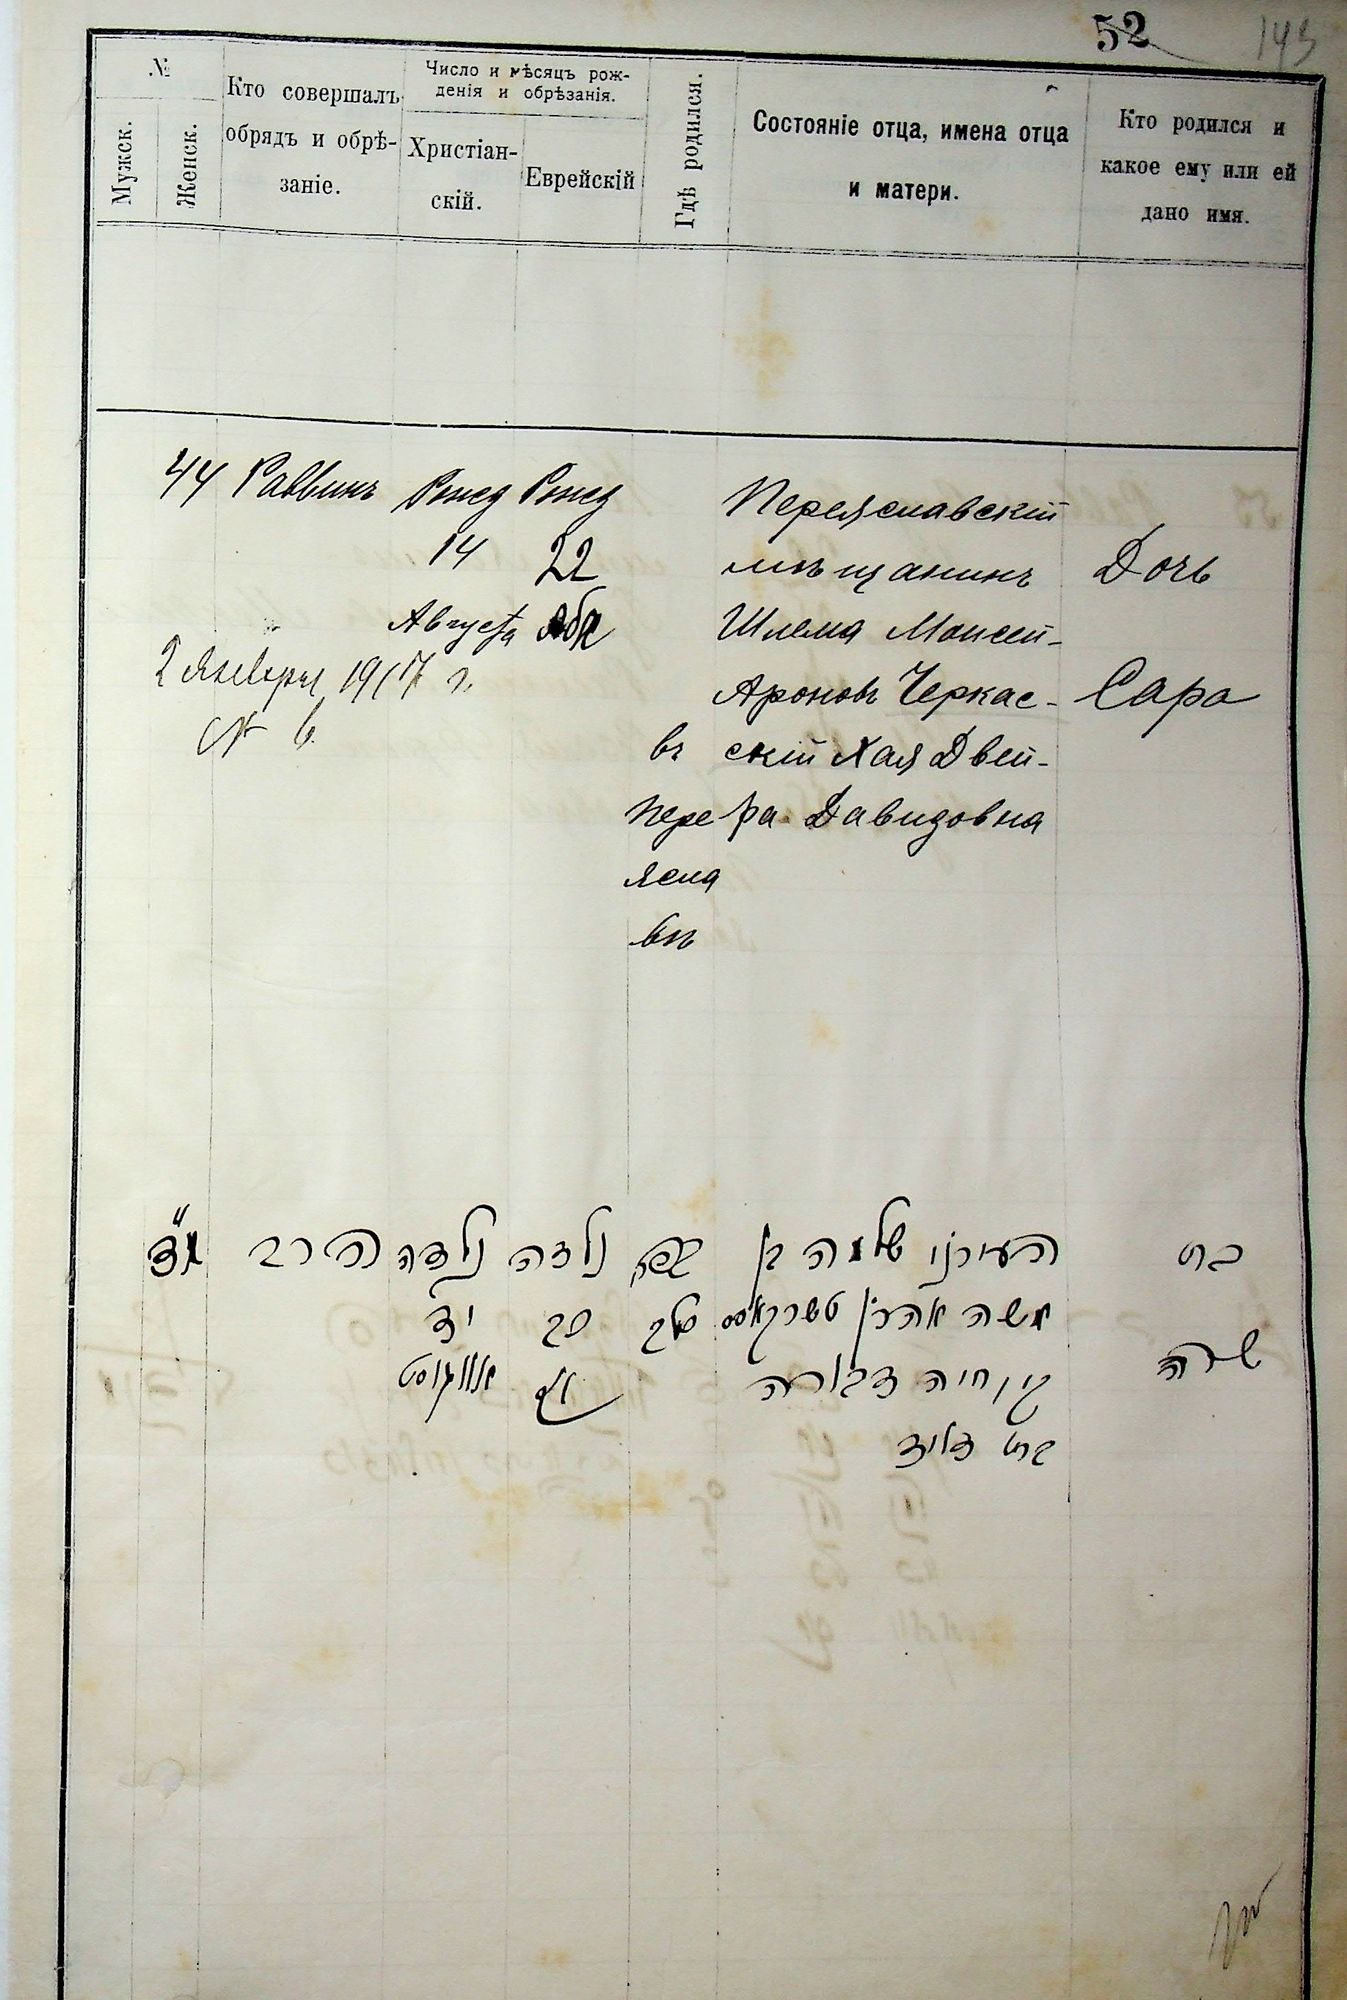 52
143
№
Мужск.
Женск.
Кто совершалъ
обрядъ и обрѣ-
заніе.
Число и мѣсяцъ рож-
денія и обрѣзанія.
Христіан-
скій.
Еврейскій
Гдѣ родился.
Состояніе отца, имена отца
и матери.
Кто родился и
какое ему или ей
дано имя.
44
Раввинъ
Рожд
14
Августа
Рожд
22
въ
Пере
ясла
влѣ
Переяславскій
мѣщанинъ
Шлема Моисей-
Ароновъ Черкас-
скій Хая Двей-
ра Давидовна
Дочь
Сара
2 Января 1917 г.
№ 6.
מ"ד
הרב
נולדה
יד
אוואגוסט
נולדה
כב
העירני שלמה בן
משה אהרן טשרקאסס
חיה דבורה
בת דויד
בת
שרה